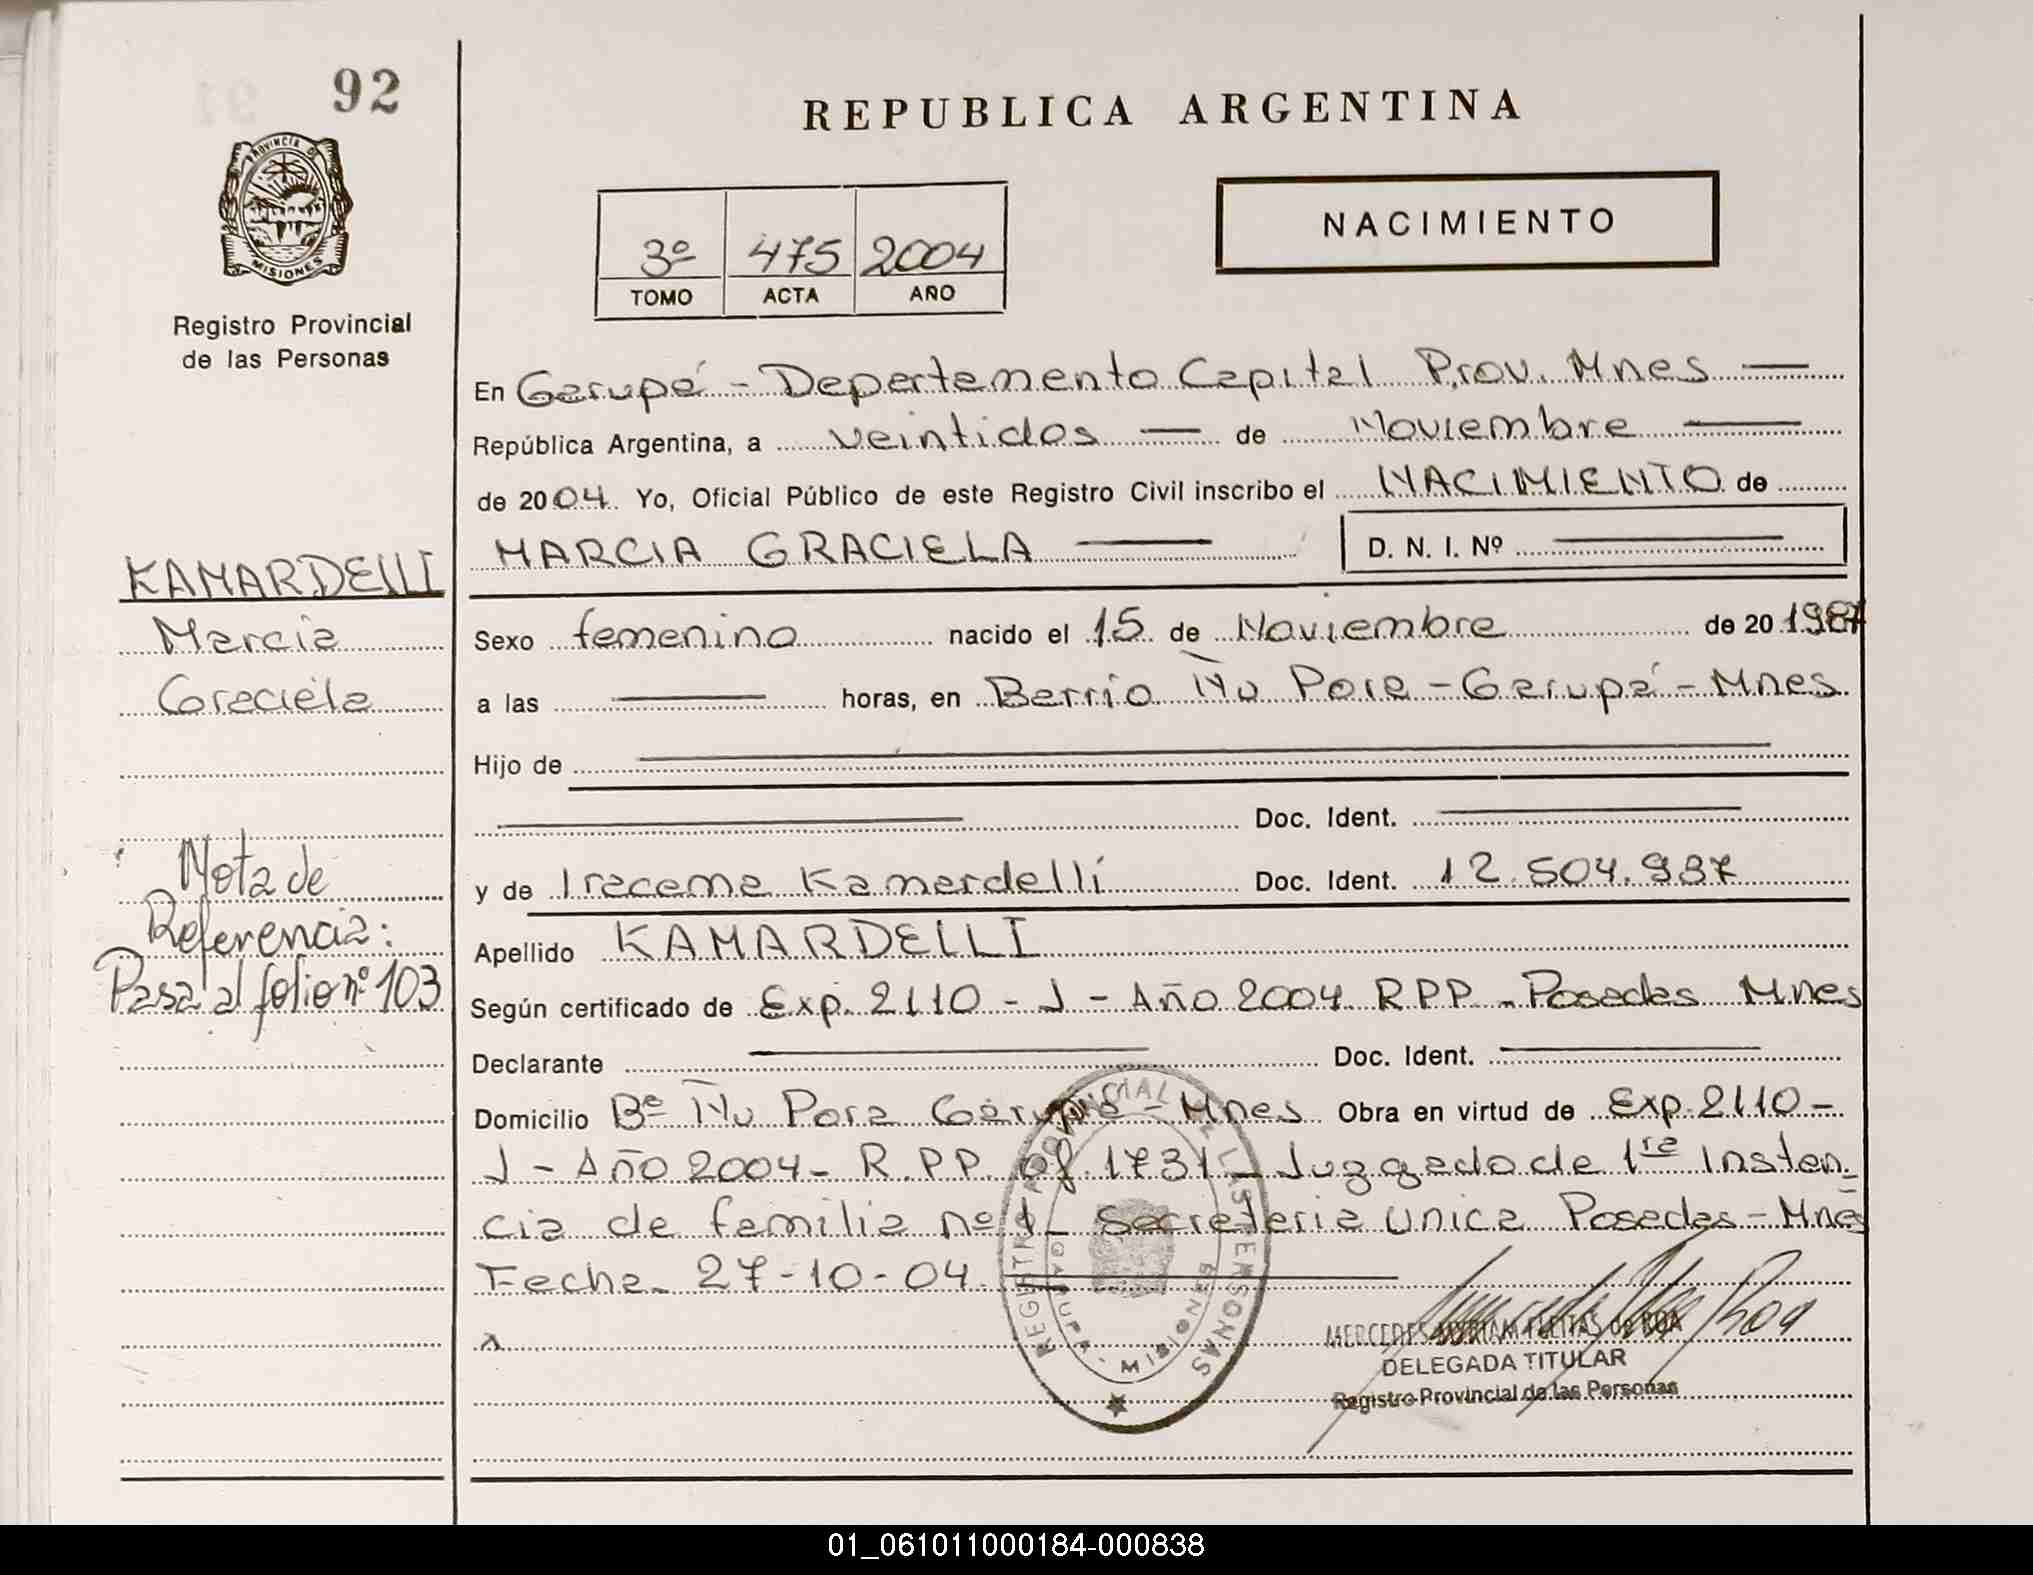 92
PROVINCIA DE
MISIONES
Registro Provincial
de las Personas
REPUBLICA ARGENTINA
3º 475 2004
TOMO ACTA AÑO
NACIMIENTO
En Garupá - Departamento Capital Prov. Mnes
República Argentina, a veintidos de Noviembre
de 2004. Yo, Oficial Público de este Registro Civil inscribo el NACIMIENTO de
MARCIA GRACIELA D. N. I. Nº
KAMARDELLI
Marcia
Graciela
Sexo femenino nacido el 15 de Noviembre de 20 1987
a las horas, en Barrio Ñu Pora - Garupá - Mnes.
Hijo de
Doc. Ident.
y de Iracema Kamardelli Doc. Ident. 12.504.937
Apellido KAMARDELLI
Nota de
Referencia:
Pasa al folio nº 103
Según certificado de Exp. 2110 - J - Año 2004 RPP - Posadas Mnes
Declarante Doc. Ident.
Domicilio Bº Ñu Pora Garupá - Mnes Obra en virtud de Exp. 2110 -
J - Año 2004 - R.P.P. of. 1731 - Juzgado de 1ra Instan-
cia de familia nº 1 - Secretaria unica Posadas - Mnes
Fecha 27-10-04.
REGISTRO PROVINCIAL DE LAS PERSONAS
GARUPA - MISIONES
DELEGADA TITULAR
Registro Provincial de las Personas
01_061011000184-000838